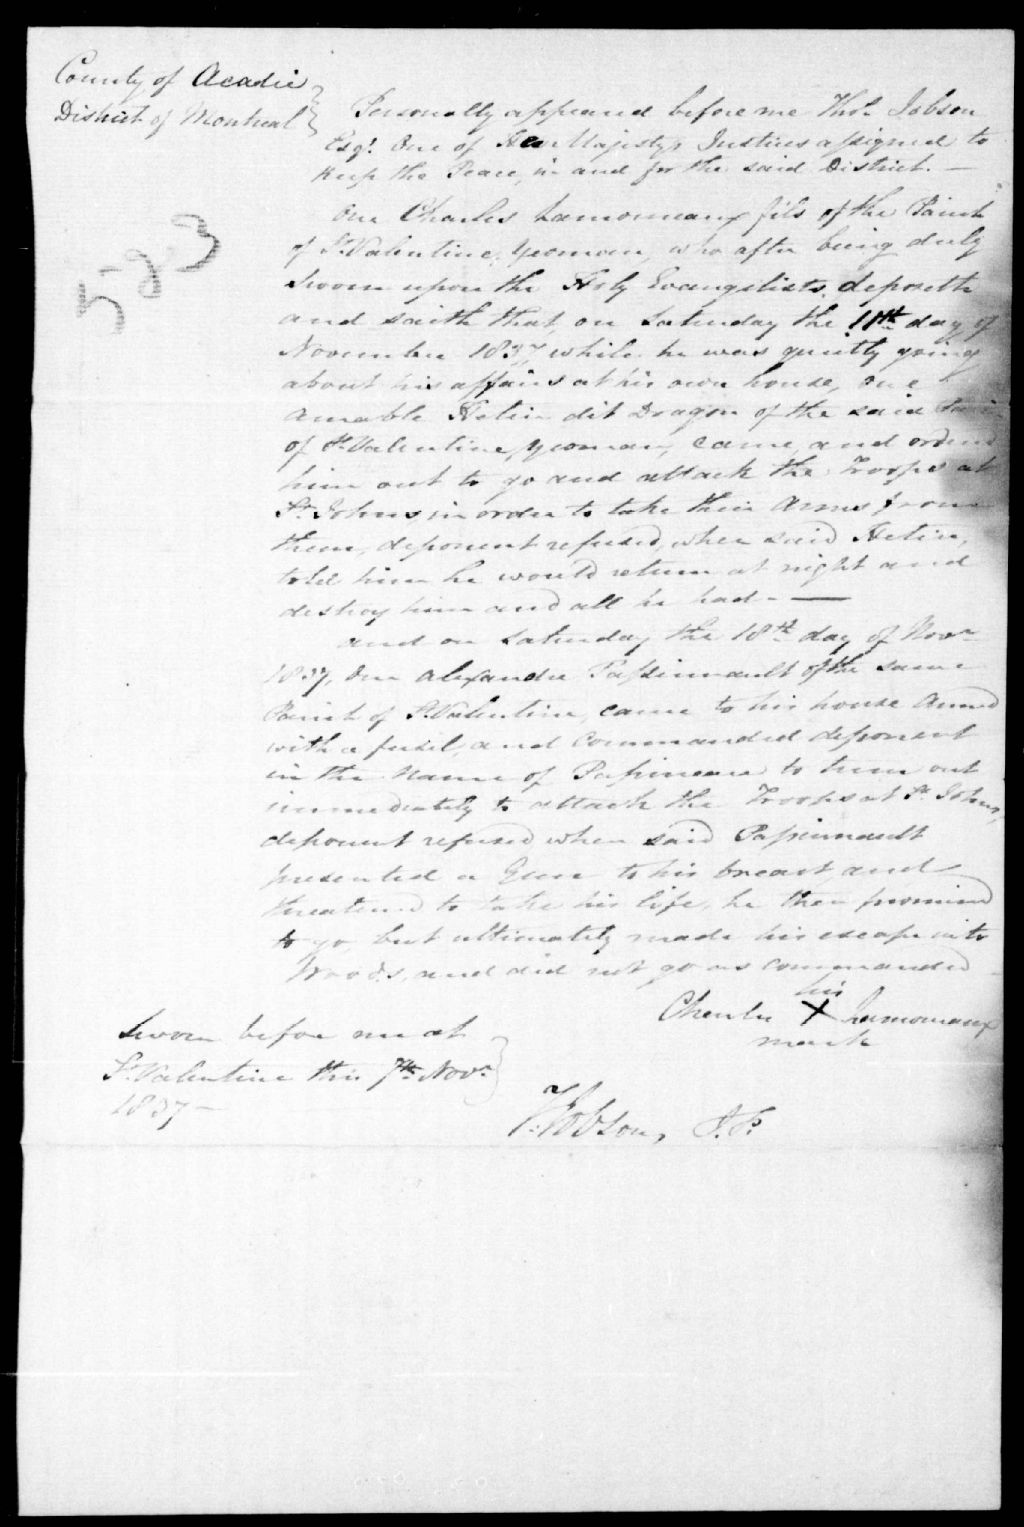 County of Acadie
District of Montreal
Personally appeared before me Thos. Jobson
Esqr. One of Her Majestys Justices assigned to
Keep the Peace, in and for the said District. —
583
One Charles Lamoureaux fils of the Parish
of St. Valentine, yeoman, who after being duly
Sworn upon the Holy Evangelists, deposeth
and saith that, on Saturday the 11th day of
November 1837, while he was quietly going
about his affairs at his own house, one
Amable Hetin dit Dragon of the said
of St. Valentine, yeoman, came, and orderd
him out to go and attack the Troops at
St. Johns, in order to take their Arms from
them, deponent refused, when said Hetin,
told him he would return at night and
destroy him and all he had. —
and on Saturday the 18th day of Novr.
1837, One Alexandre Passinnault of the same
Parish of St. Valentine, came to his house Armed
with a fusil, and Commanded deponent
in the Name of Papineau to turn out
immediately to attack the Troops at St. Johns,
deponent refused when said Passinnault
presented a Gun to his breast and
threatened to take his life, he then promised
to go, but ultimately made his escape into
Woods, and did not go as commanded
his
Charles X Lamoureaux
mark
Sworn before me at
St. Valentine this 7th Novr.
1837 —
T. Jobson, J.P.